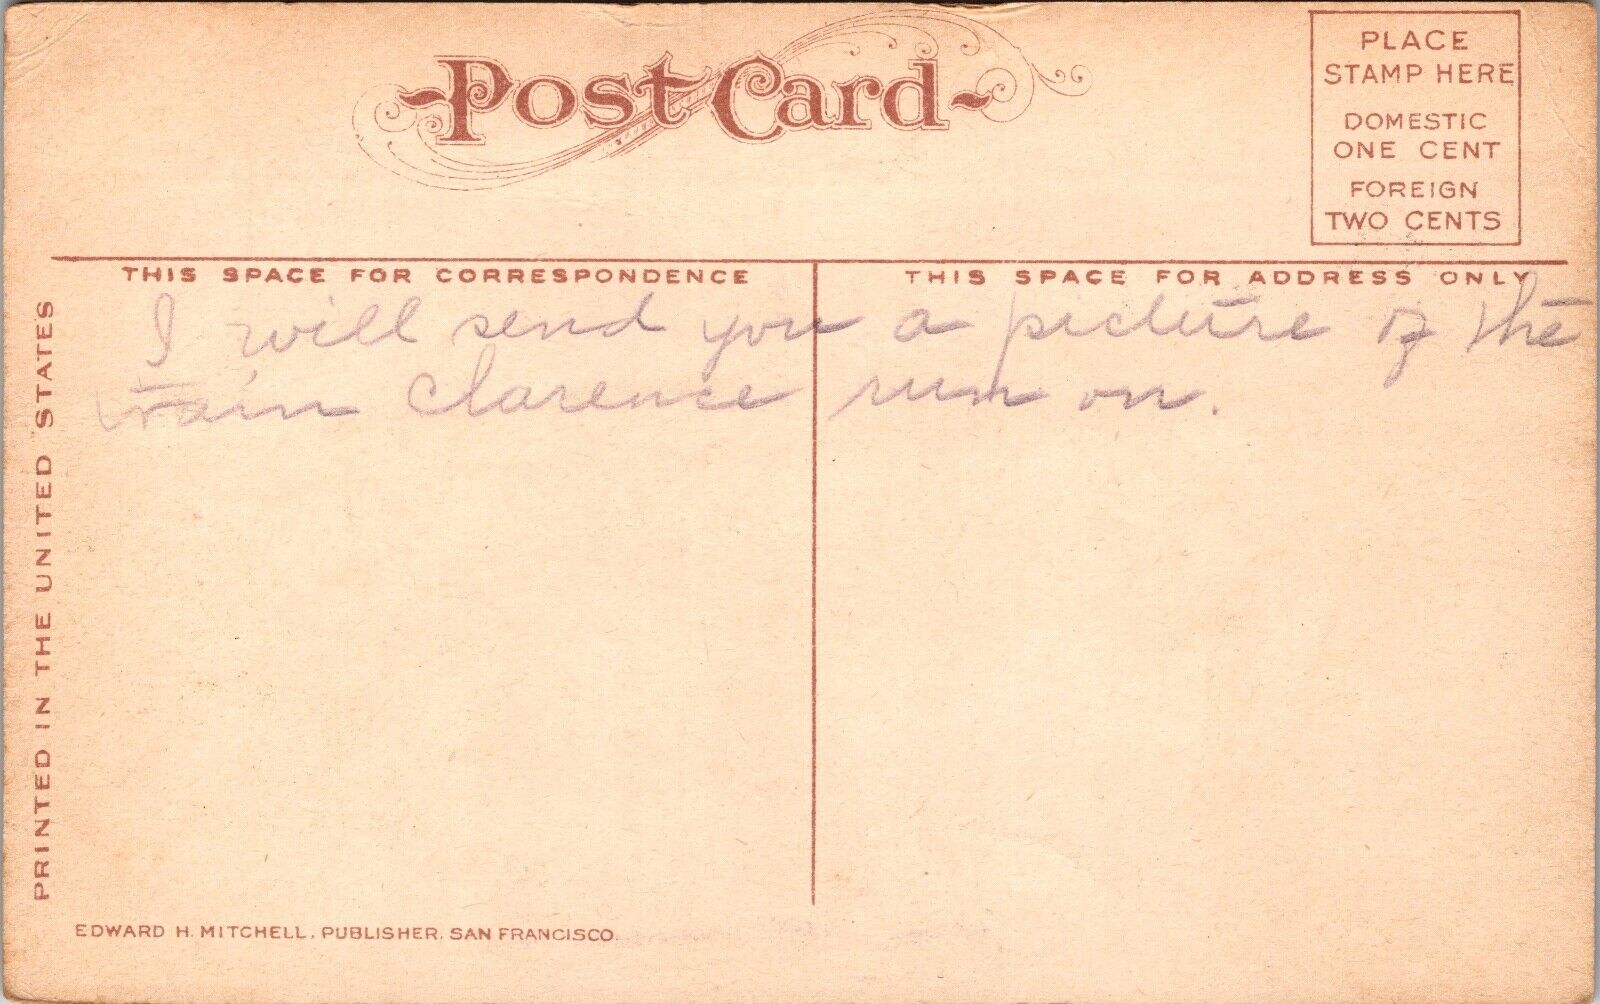 Post Card
PLACE
STAMP HERE
DOMESTIC
ONE CENT
FOREIGN
TWO CENTS
THIS SPACE FOR CORRESPONDENCE
THIS SPACE FOR ADDRESS ONLY
I will send you a picture of the
train Clarence run on.
PRINTED IN THE UNITED STATES
EDWARD H. MITCHELL, PUBLISHER, SAN FRANCISCO.